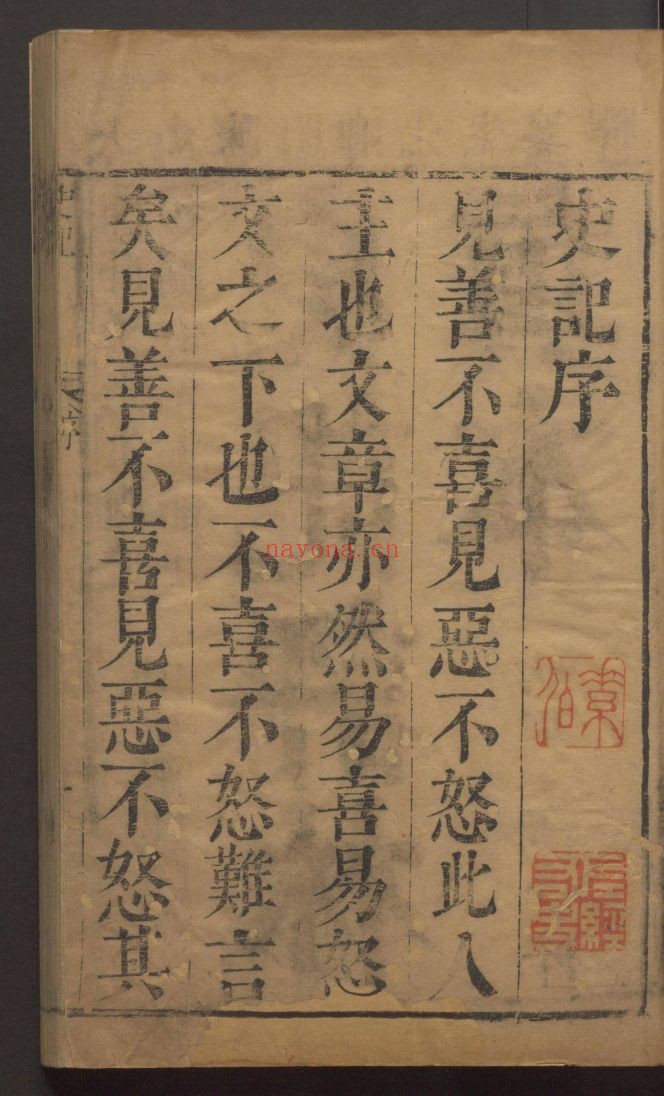 史記序
見善不喜見惡不怒此人
主也文章亦然易喜易怒
文之下也不喜不怒難言
矣見善不喜見惡不怒其
序
nayona.cn